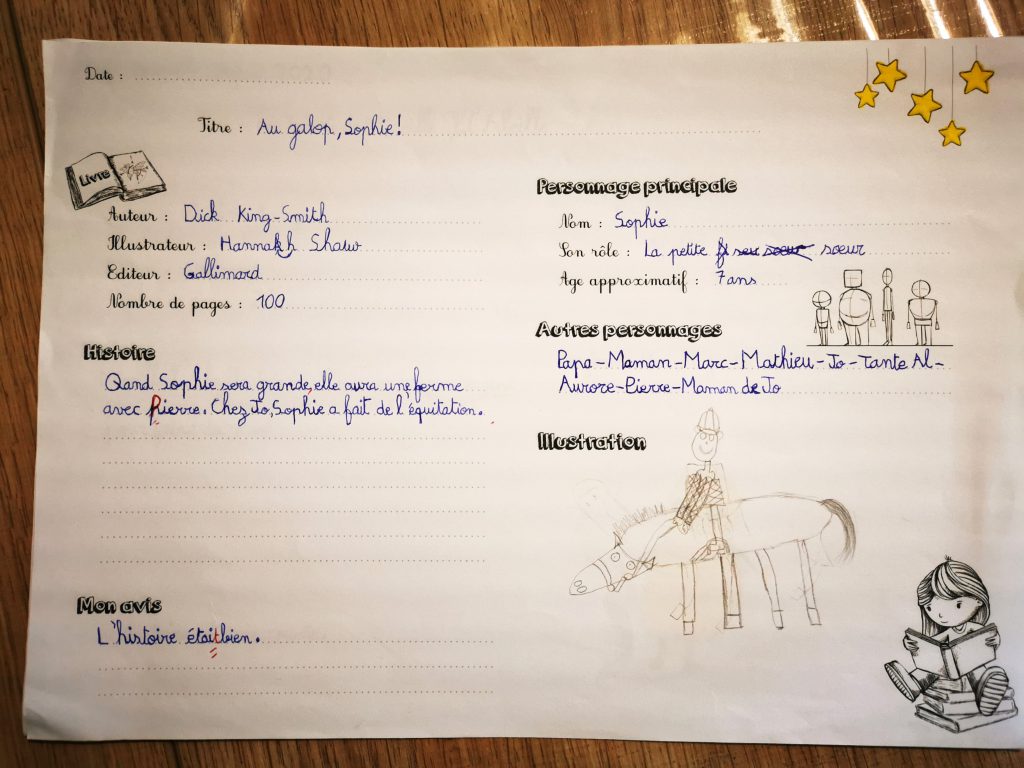 Date :
Titre : Au galop, Sophie!
LIVRE
Auteur : Dick King-Smith
Illustrateur : Hannah Shaw
Editeur : Gallimard
Nombre de pages : 100
Histoire
Qand Sophie sera grande, elle aura une ferme
avec Pierre. Chez Jo, Sophie a fait de l'équitation.
Mon avis
L'histoire était bien.
Personnage principale
Nom : Sophie
Son rôle : La petite sœur
Age approximatif : 7 ans
Autres personnages
Papa-Maman-Marc-Mathieu-Jo-Tante Al-
Aurore-Pierre-Maman de Jo
Illustration